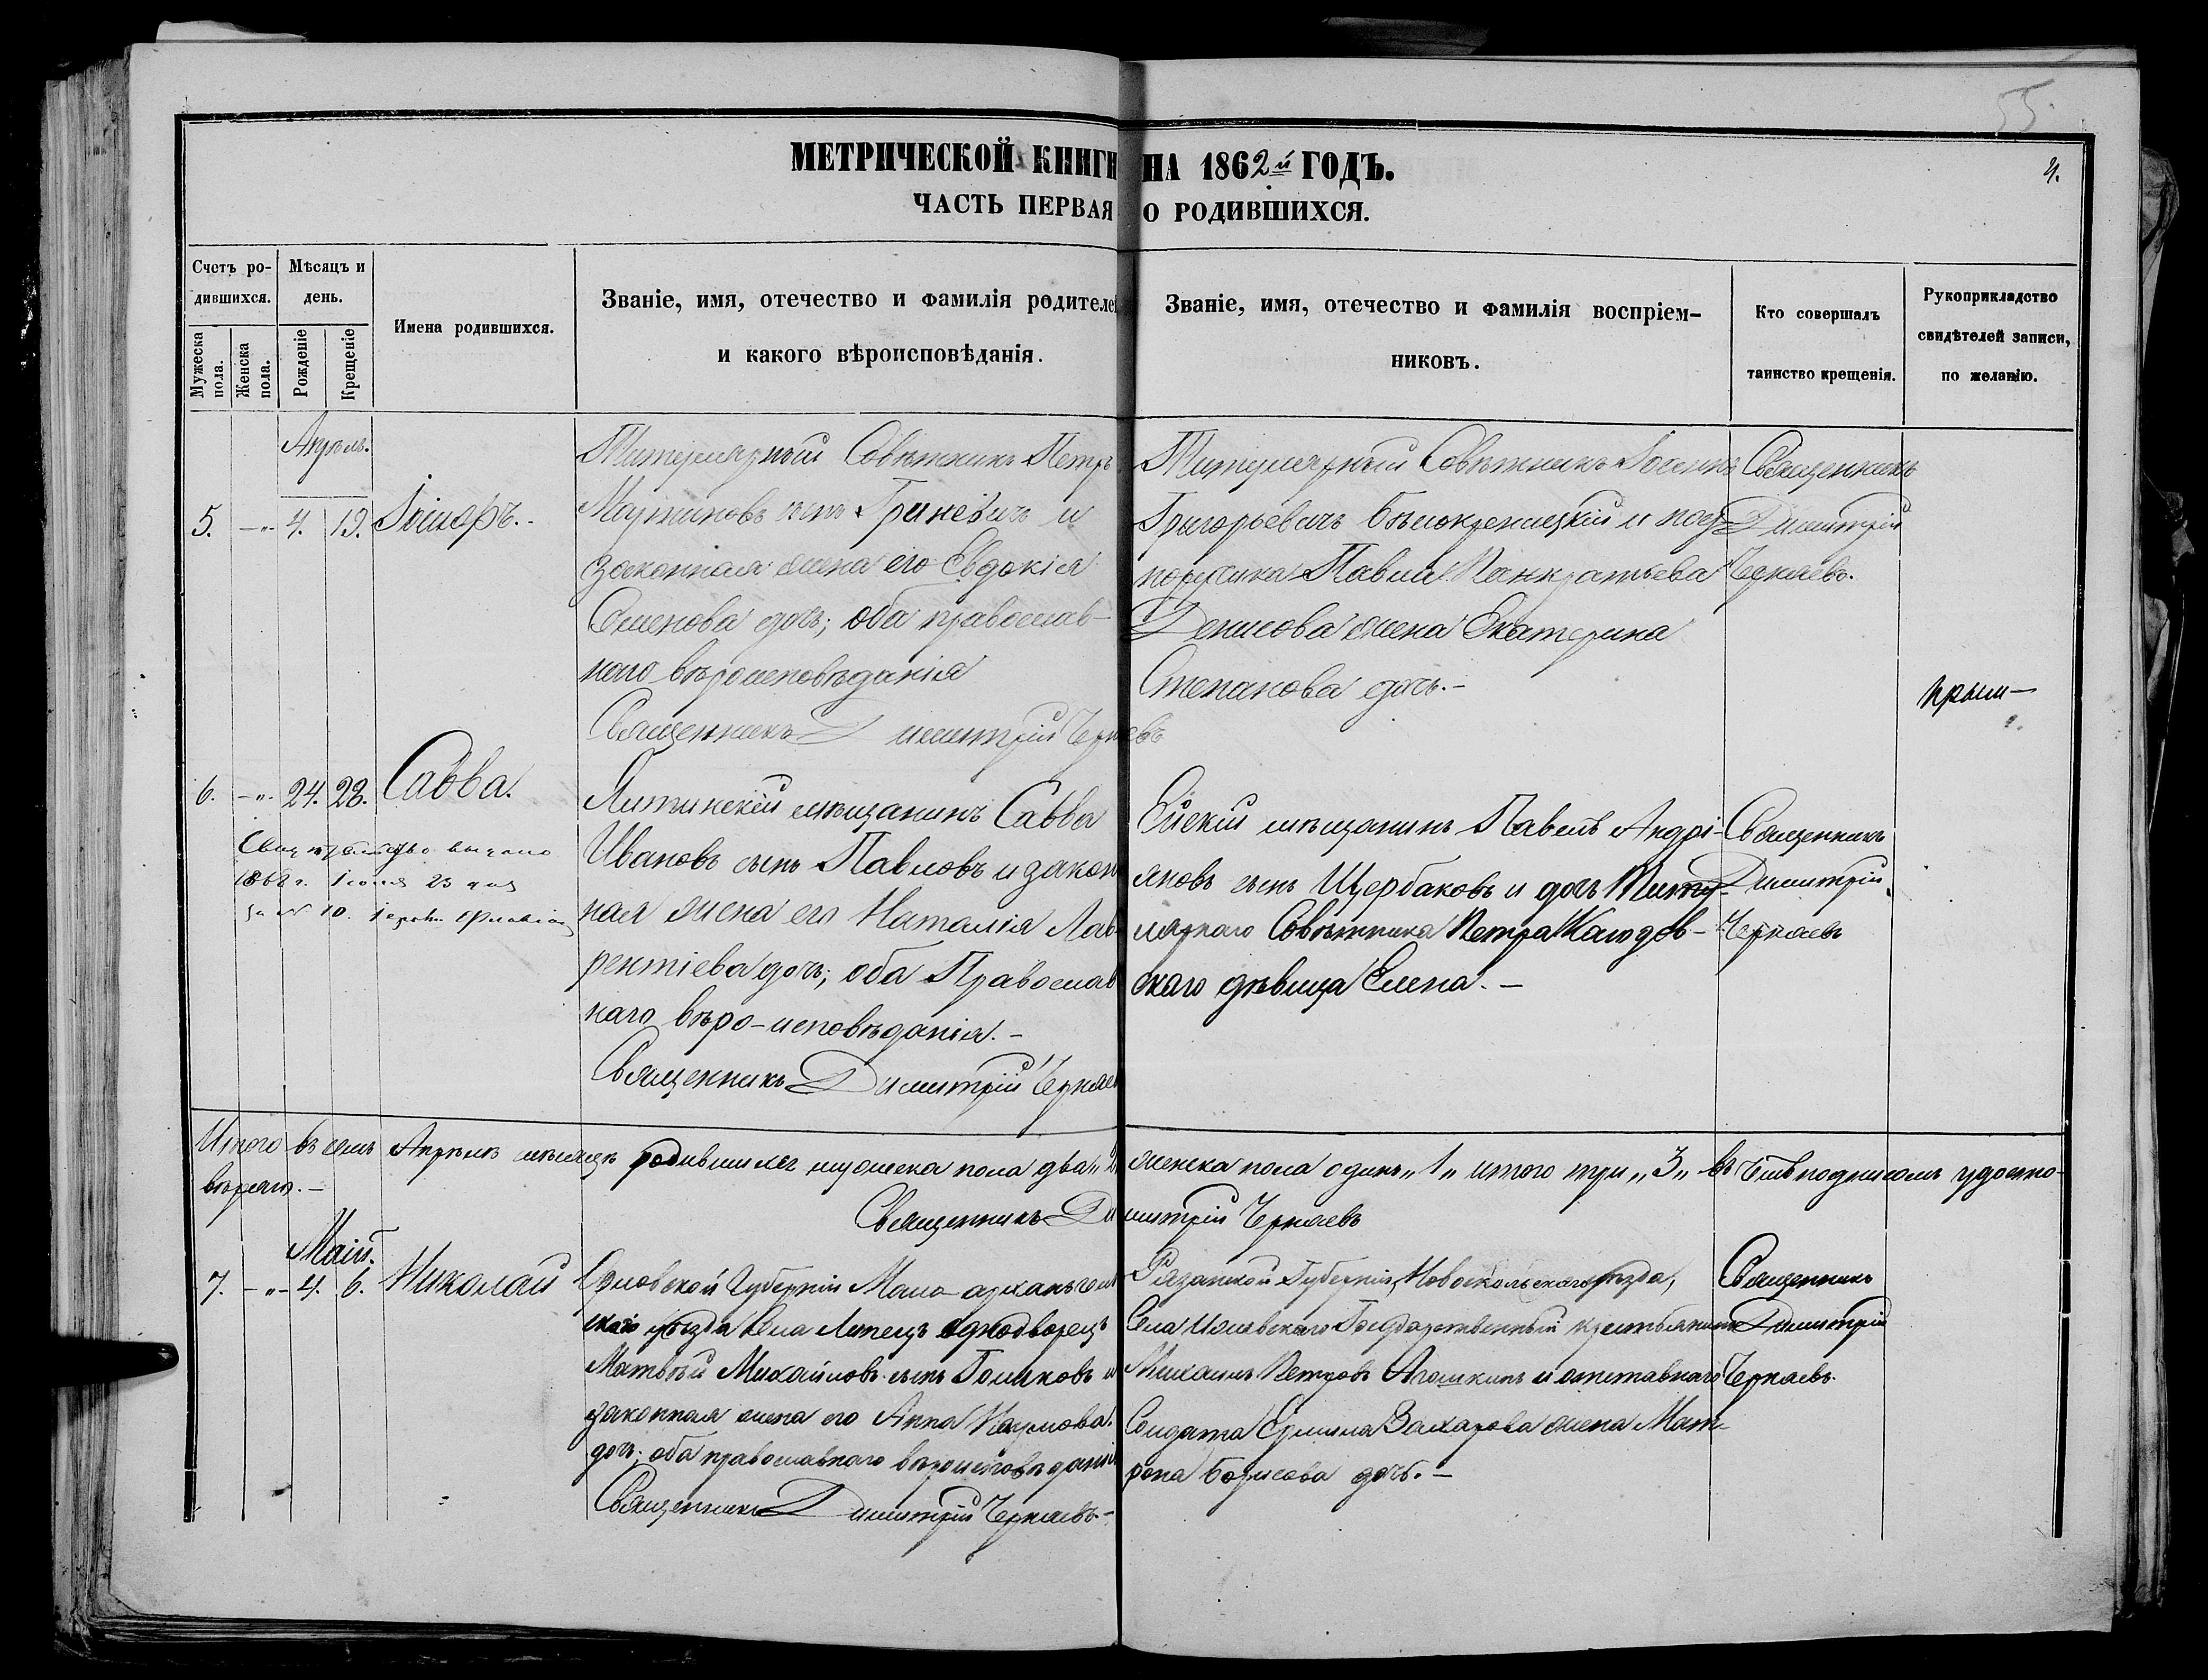 55.
МЕТРИЧЕСКОЙ КНИГИ НА 1862й ГОДЪ.
4.
ЧАСТЬ ПЕРВАЯ О РОДИВШИХСЯ.
Счетъ ро-
дившихся.
Мужеска пола.
Женска пола.
Мѣсяцъ и
день.
Рожденіе
Крещеніе
Имена родившихся.
Званіе, имя, отечество и фамилія родителей
и какого вѣроисповѣданія.
Званіе, имя, отечество и фамилія воспріем-
никовъ.
Кто совершалъ
таинство крещенія.
Рукоприкладство
свидѣтелей записи,
по желанію.
Апрѣль.
5. -"- 4. 19. Іосифъ.-
Титулярный Совѣтникъ Петръ
Мартиновъ сынъ Гриневичъ и
законная жена его Евдокія
Семенова дочь; оба православ-
наго вѣроисповѣданія
Священникъ Димитрій Черняевъ
Титулярный Совѣтникъ Іосифъ
Григорьевичъ Бѣлокреницкій и под-
поручика Павла Панкратьева
Денисова жена Екатерина
Степанова дочь.-
Священникъ
Димитрій
Черняевъ.
6. -"- 24. 28. Савва.
Свидѣтельство выдано
1862 г. Іюня 23 дня
за № 10.
Литинскій мѣщанинъ Савва
Ивановъ сынъ Павловъ и закон
ная жена его Наталія Лав
рентіева дочь; оба Православ
наго вѣро-исповѣданія.-
Священникъ Димитрій Черняев
Ейскій мѣщанинъ Павелъ Андрі-
яновъ сынъ Щербаковъ и дочь Титу-
лярнаго Совѣтника Петра
скаго дѣвица Елена.-
Священникъ
Димитрій
Черняевъ
Итого въ семъ Апрѣлѣ мѣсяцѣ родившихся мужеска пола два женска пола одинъ „1„ итого три „3„ въ чемъ подписомъ удосто-
вѣряю.-
Священникъ Димитрій Черняевъ
Май.
7. -"- 4. 6. Николай
Орловской Губерніи Мало-архангел
скаго уѣзда Села Липецъ однодворецъ
Матвѣй Михайловъ сынъ Голиковъ и
законная жена его Анна Наумова
дочь; оба православнаго вѣроисповѣданія
Священникъ Димитрій Черняевъ.-
Рязанской Губерніи, уѣзда,
Села Государственный крестьянинъ
Михаилъ Петровъ Агошкинъ и отставнаго
Солдата Захарова жена Мат-
рона Борисова дочь.-
Священникъ
Димитрій
Черняевъ.